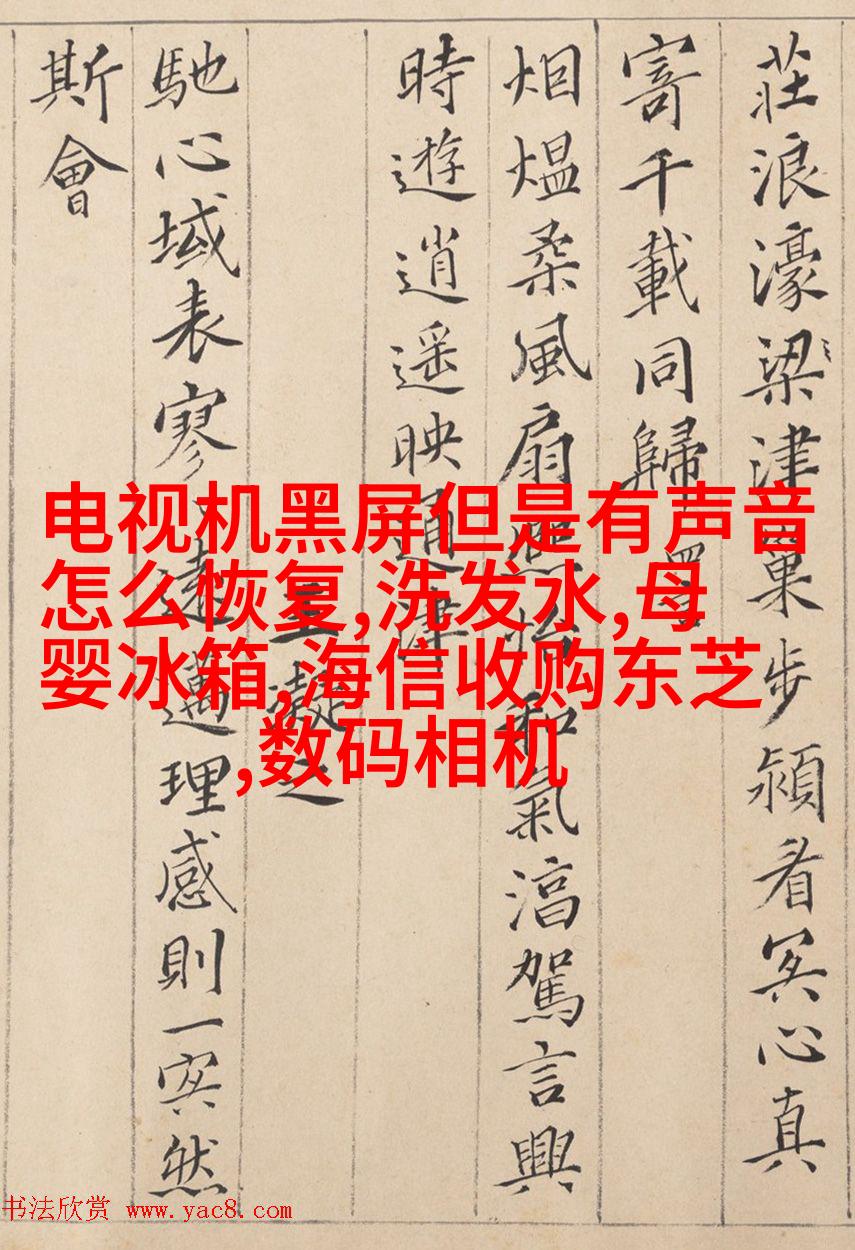 莊浪濠梁津巢步潁看冥心真
寄千載同歸
烟煴柔風扇熙怡和氣淯駕言興
時遊逍遥映通津
王凝之
馳心域表寥寥遠邁理感則一冥然
斯會
电视机黑屏但是有声音
怎么恢复,洗发水,母
婴冰箱,海信收购东芝
,数码相机
书法欣赏 www.yac8.com